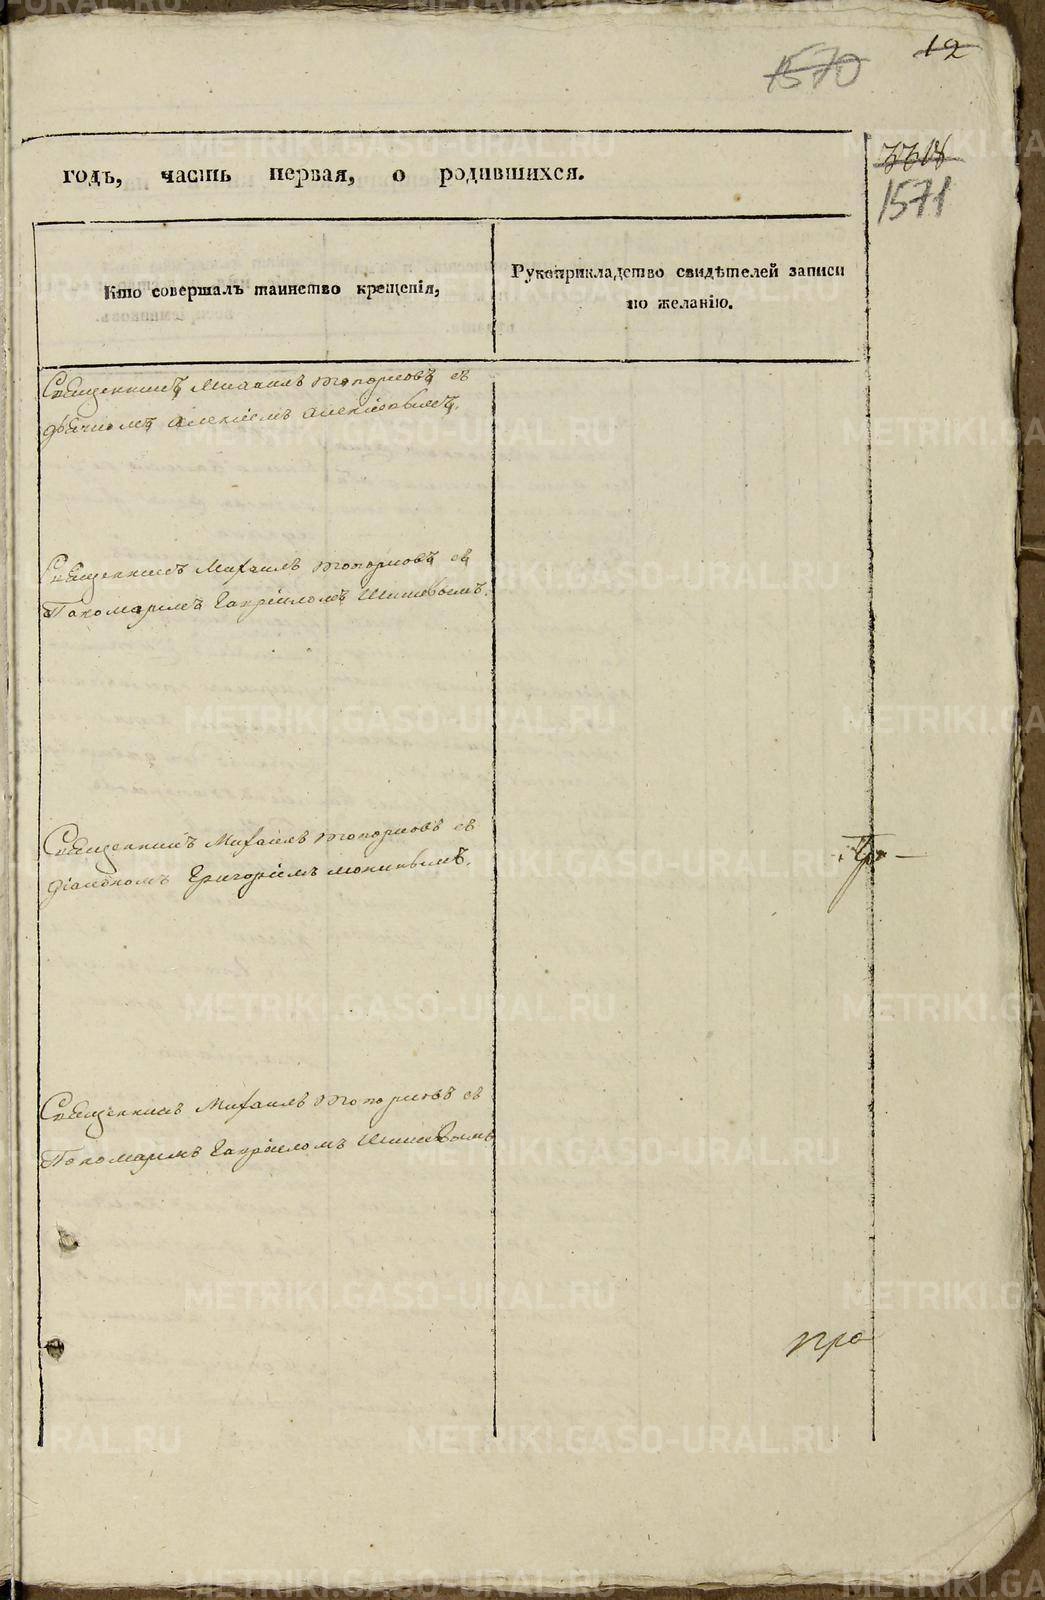 12
1570
1571
годъ, часть первая, о родившихся.
Кто совершалъ таинство крещенія,
Рукоприкладство свидѣтелей записи
по желанію.
Священникъ Михаилъ Топорковъ съ
дьячкомъ Алексіемъ
Священникъ Михаилъ Топорковъ съ
Пономаремъ Гавріиломъ Шишовымъ.
Священникъ Михаилъ Топорковъ съ
діакономъ Григоріемъ
Священникъ Михаилъ Топорковъ съ
Пономаремъ Гавріиломъ Шишовымъ
про
METRIKI.GASO-URAL.RU